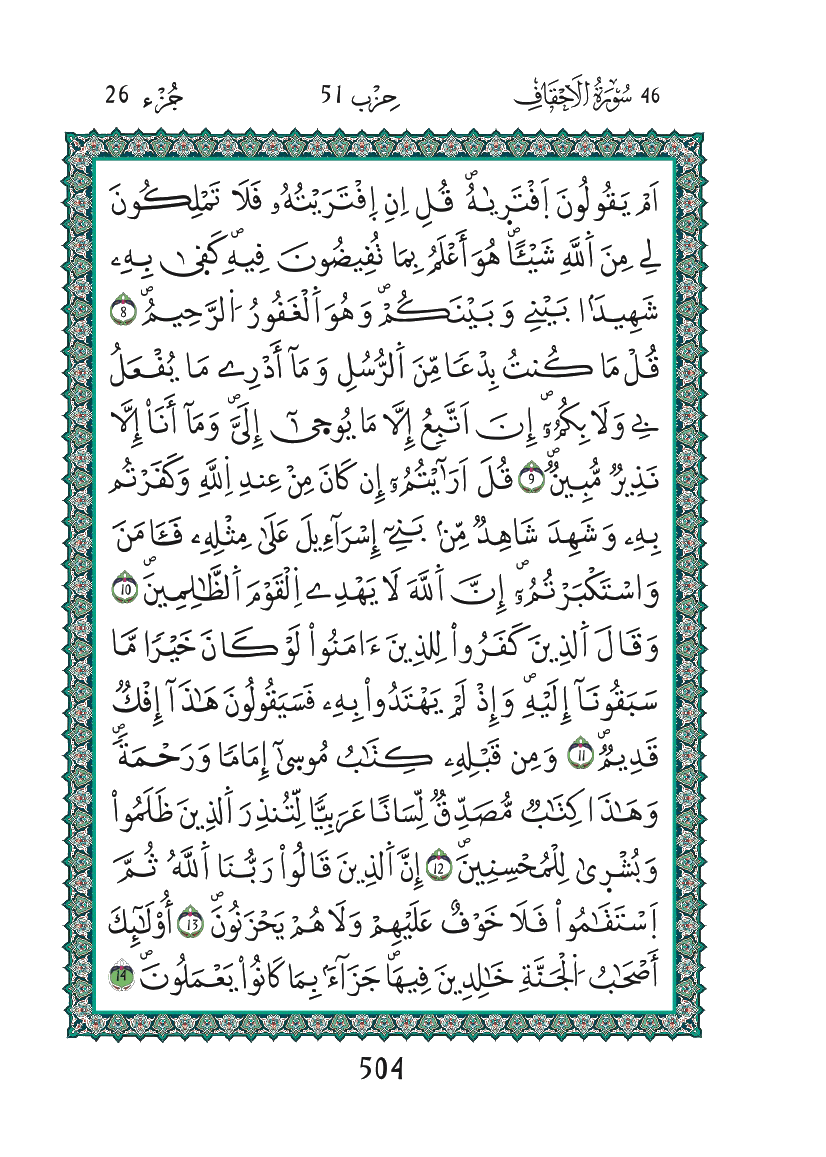 46 سُورَةُ الاَحْقَافِ حِزْب 51 جُزْء 26
اَمْ يَقُولُونَ اَفْتَر۪يٰهُۖ قُلِ اِنِ اِفْتَرَيْتُهُۥ فَلَا تَمْلِكُونَ
لِے مِنَ اَ۬للَّهِ شَيْـٔاًۖ هُوَ أَعْلَمُ بِمَا تُفِيضُونَ فِيهِۖ كَف۪يٰ بِهِۦ
شَهِيداَۢ بَيْنِے وَبَيْنَكُمْۖ وَهُوَ اَ۬لْغَفُورُ اُ۬لرَّحِيمُۖ 8
قُلْ مَا كُنتُ بِدْعاً مِّنَ اَ۬لرُّسُلِ وَمَآ أَدْرِے مَا يُفْعَلُ
بِے وَلَا بِكُمُۥٓۖ إِنَ اَتَّبِعُ إِلَّا مَا يُوح۪يٰٓ إِلَيَّۖ وَمَآ أَنَا۠ إِلَّا
نَذِيرٞ مُّبِينٞۖ 9 قُلَ اَرَٰٓيْتُمُۥٓ إِن كَانَ مِنْ عِندِ اِ۬للَّهِ وَكَفَرْتُم
بِهِۦ وَشَهِدَ شَاهِدٞ مِّنۢ بَنِےٓ إِسْرَآءِيلَ عَلَىٰ مِثْلِهِۦ فَـَٔامَنَ
وَاسْتَكْبَرْتُمُۥٓۖ إِنَّ اَ۬للَّهَ لَا يَهْدِے اِ۬لْقَوْمَ اَ۬لظَّٰلِمِينَۖ 10
وَقَالَ اَ۬لذِينَ كَفَرُواْ لِلذِينَ ءَامَنُواْ لَوْ كَانَ خَيْراً مَّا
سَبَقُونَآ إِلَيْهِۖ وَإِذْ لَمْ يَهْتَدُواْ بِهِۦ فَسَيَقُولُونَ هَٰذَآ إِفْكٞ
قَدِيمٞۖ 11 وَمِن قَبْلِهِۦ كِتَٰبُ مُوس۪يٰٓ إِمَاماً وَرَحْمَةٗۖ
وَهَٰذَا كِتَٰبٞ مُّصَدِّقٞ لِّسَاناً عَرَبِيّاً لِّتُنذِرَ اَ۬لذِينَ ظَلَمُواْ
وَبُشْر۪يٰ لِلْمُحْسِنِينَۖ 12 إِنَّ اَ۬لذِينَ قَالُواْ رَبُّنَا اَ۬للَّهُ ثُمَّ
اَ۪سْتَقَٰمُواْ فَلَا خَوْفٌ عَلَيْهِمْ وَلَا هُمْ يَحْزَنُونَۖ 13 أُوْلَٰٓئِكَ
أَصْحَٰبُ اُ۬لْجَنَّةِ خَٰلِدِينَ فِيهَاۖ جَزَآءَۢ بِمَا كَانُواْ يَعْمَلُونَۖ 14
504